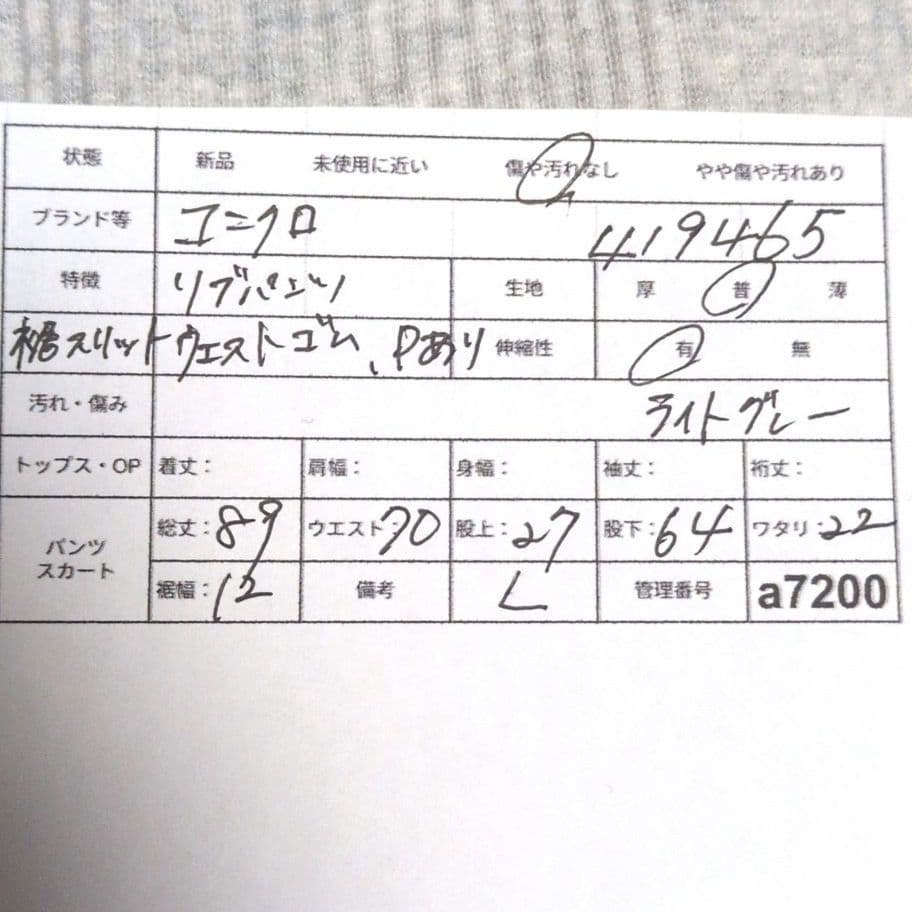 状態 新品 未使用に近い 傷や汚れなし やや傷や汚れあり
ブランド等 ユニクロ 419465
特徴 リブパンツ 生地 厚 普 薄
裾スリット ウエストゴム、Pあり 伸縮性 有 無
汚れ・傷み ライトグレー
トップス・OP 着丈: 肩幅: 身幅: 袖丈: 裄丈:
パンツ スカート 総丈:89 ウエスト:70 股上:27 股下:64 ワタリ:22
裾幅:12 備考 L 管理番号 a7200